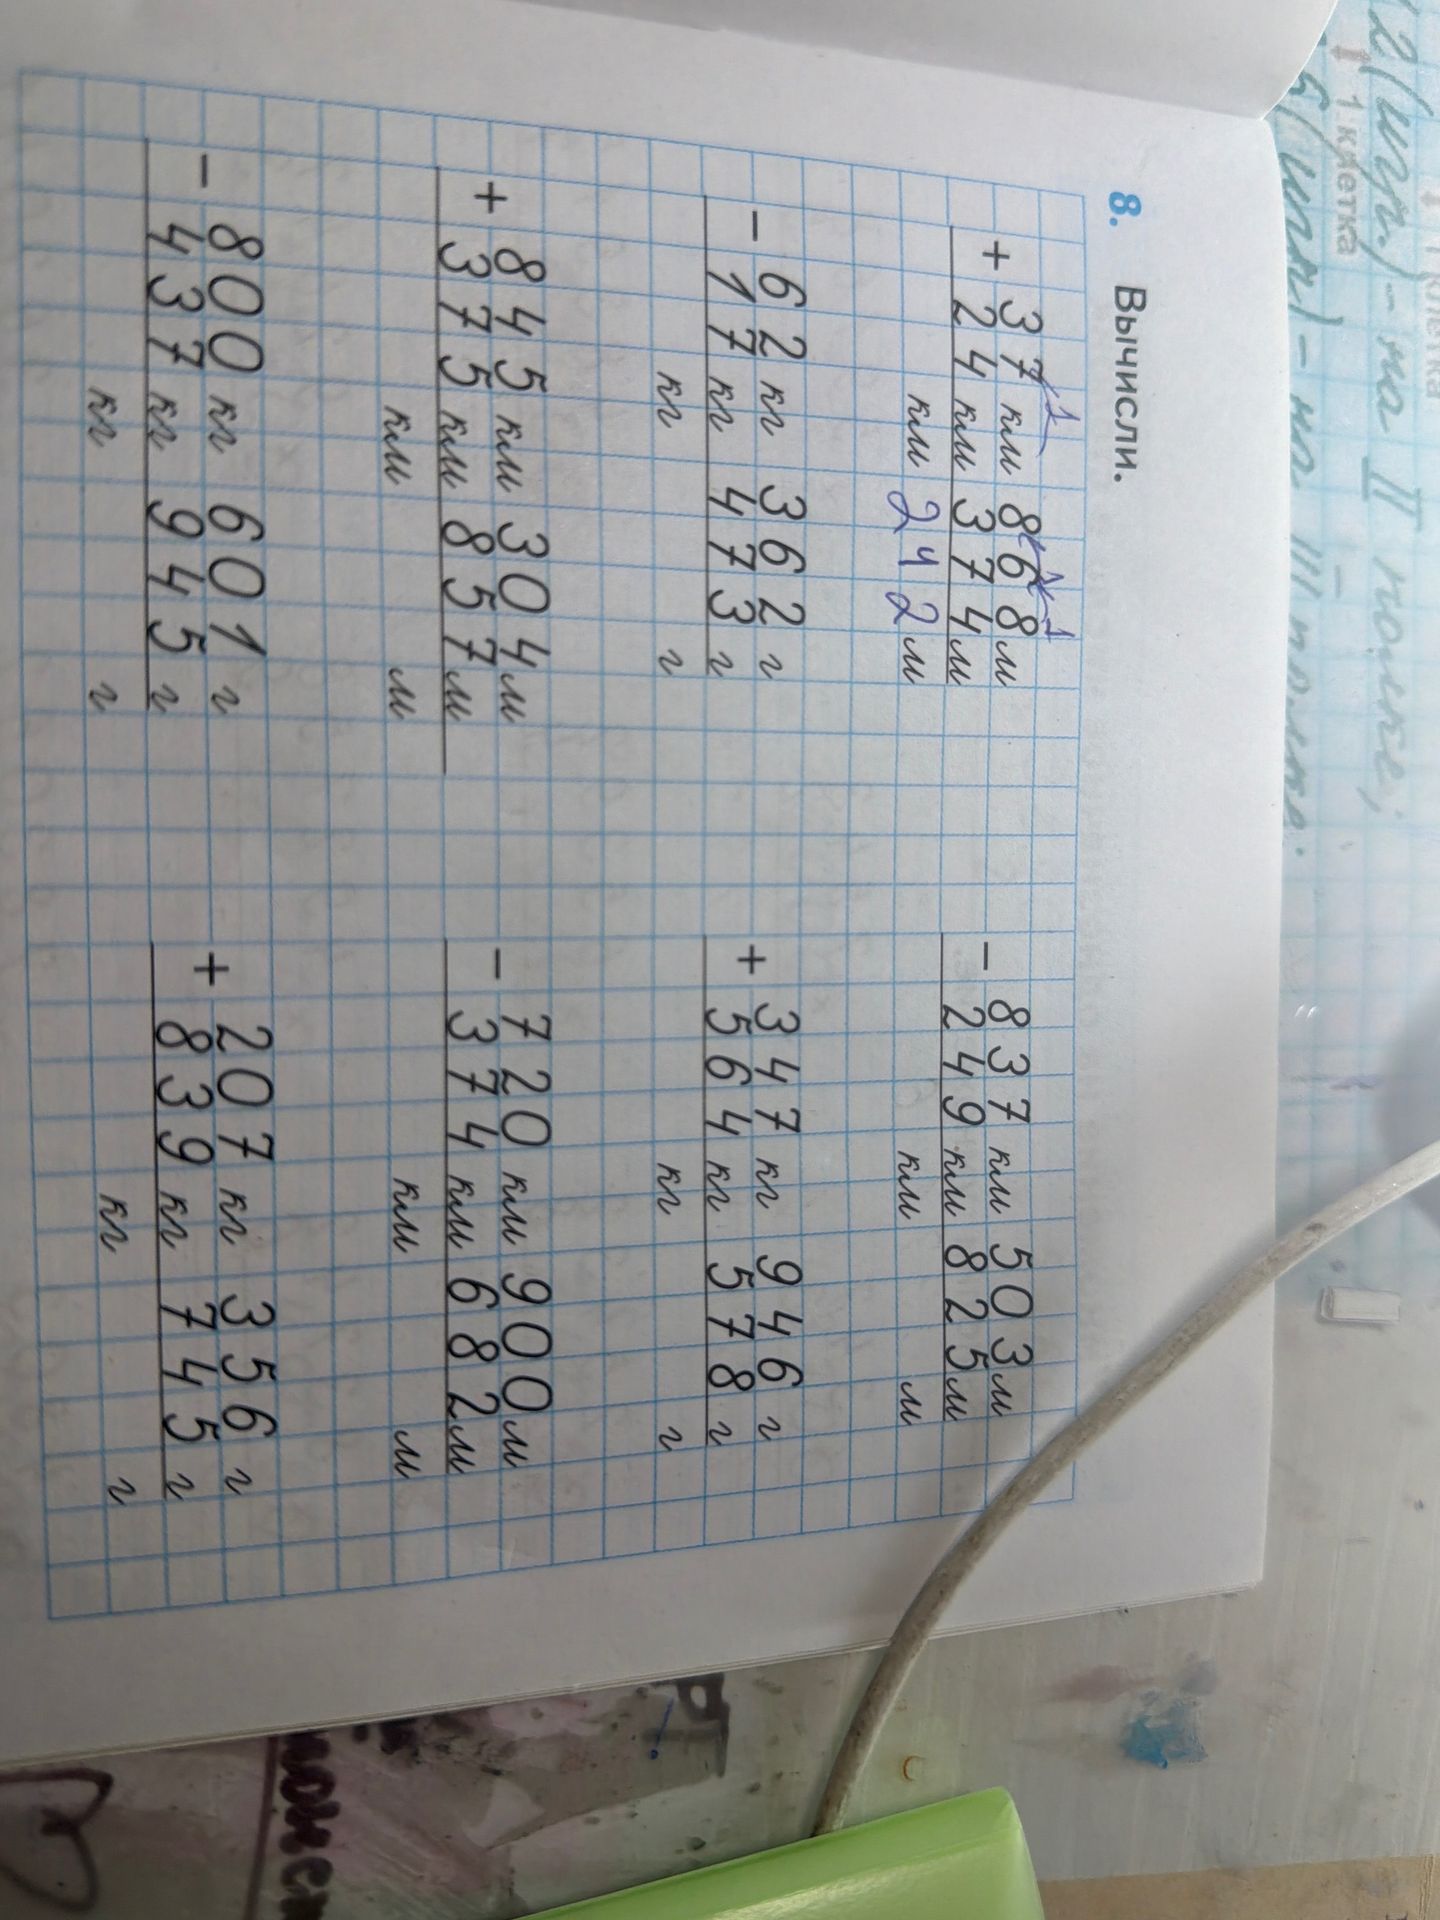 2(шт.) - на II полке;
1 клетка
8. Вычисли.
+ 37 км 868 м
24 км 374 м
км 242 м
- 837 км 503 м
249 км 825 м
км м
- 62 кг 362 г
17 кг 473 г
кг г
+ 347 кг 946 г
564 кг 578 г
кг г
+ 845 км 304 м
375 км 857 м
км м
- 720 км 900 м
374 км 682 м
км м
- 800 кг 601 г
437 кг 945 г
кг г
+ 207 кг 356 г
839 кг 745 г
кг г